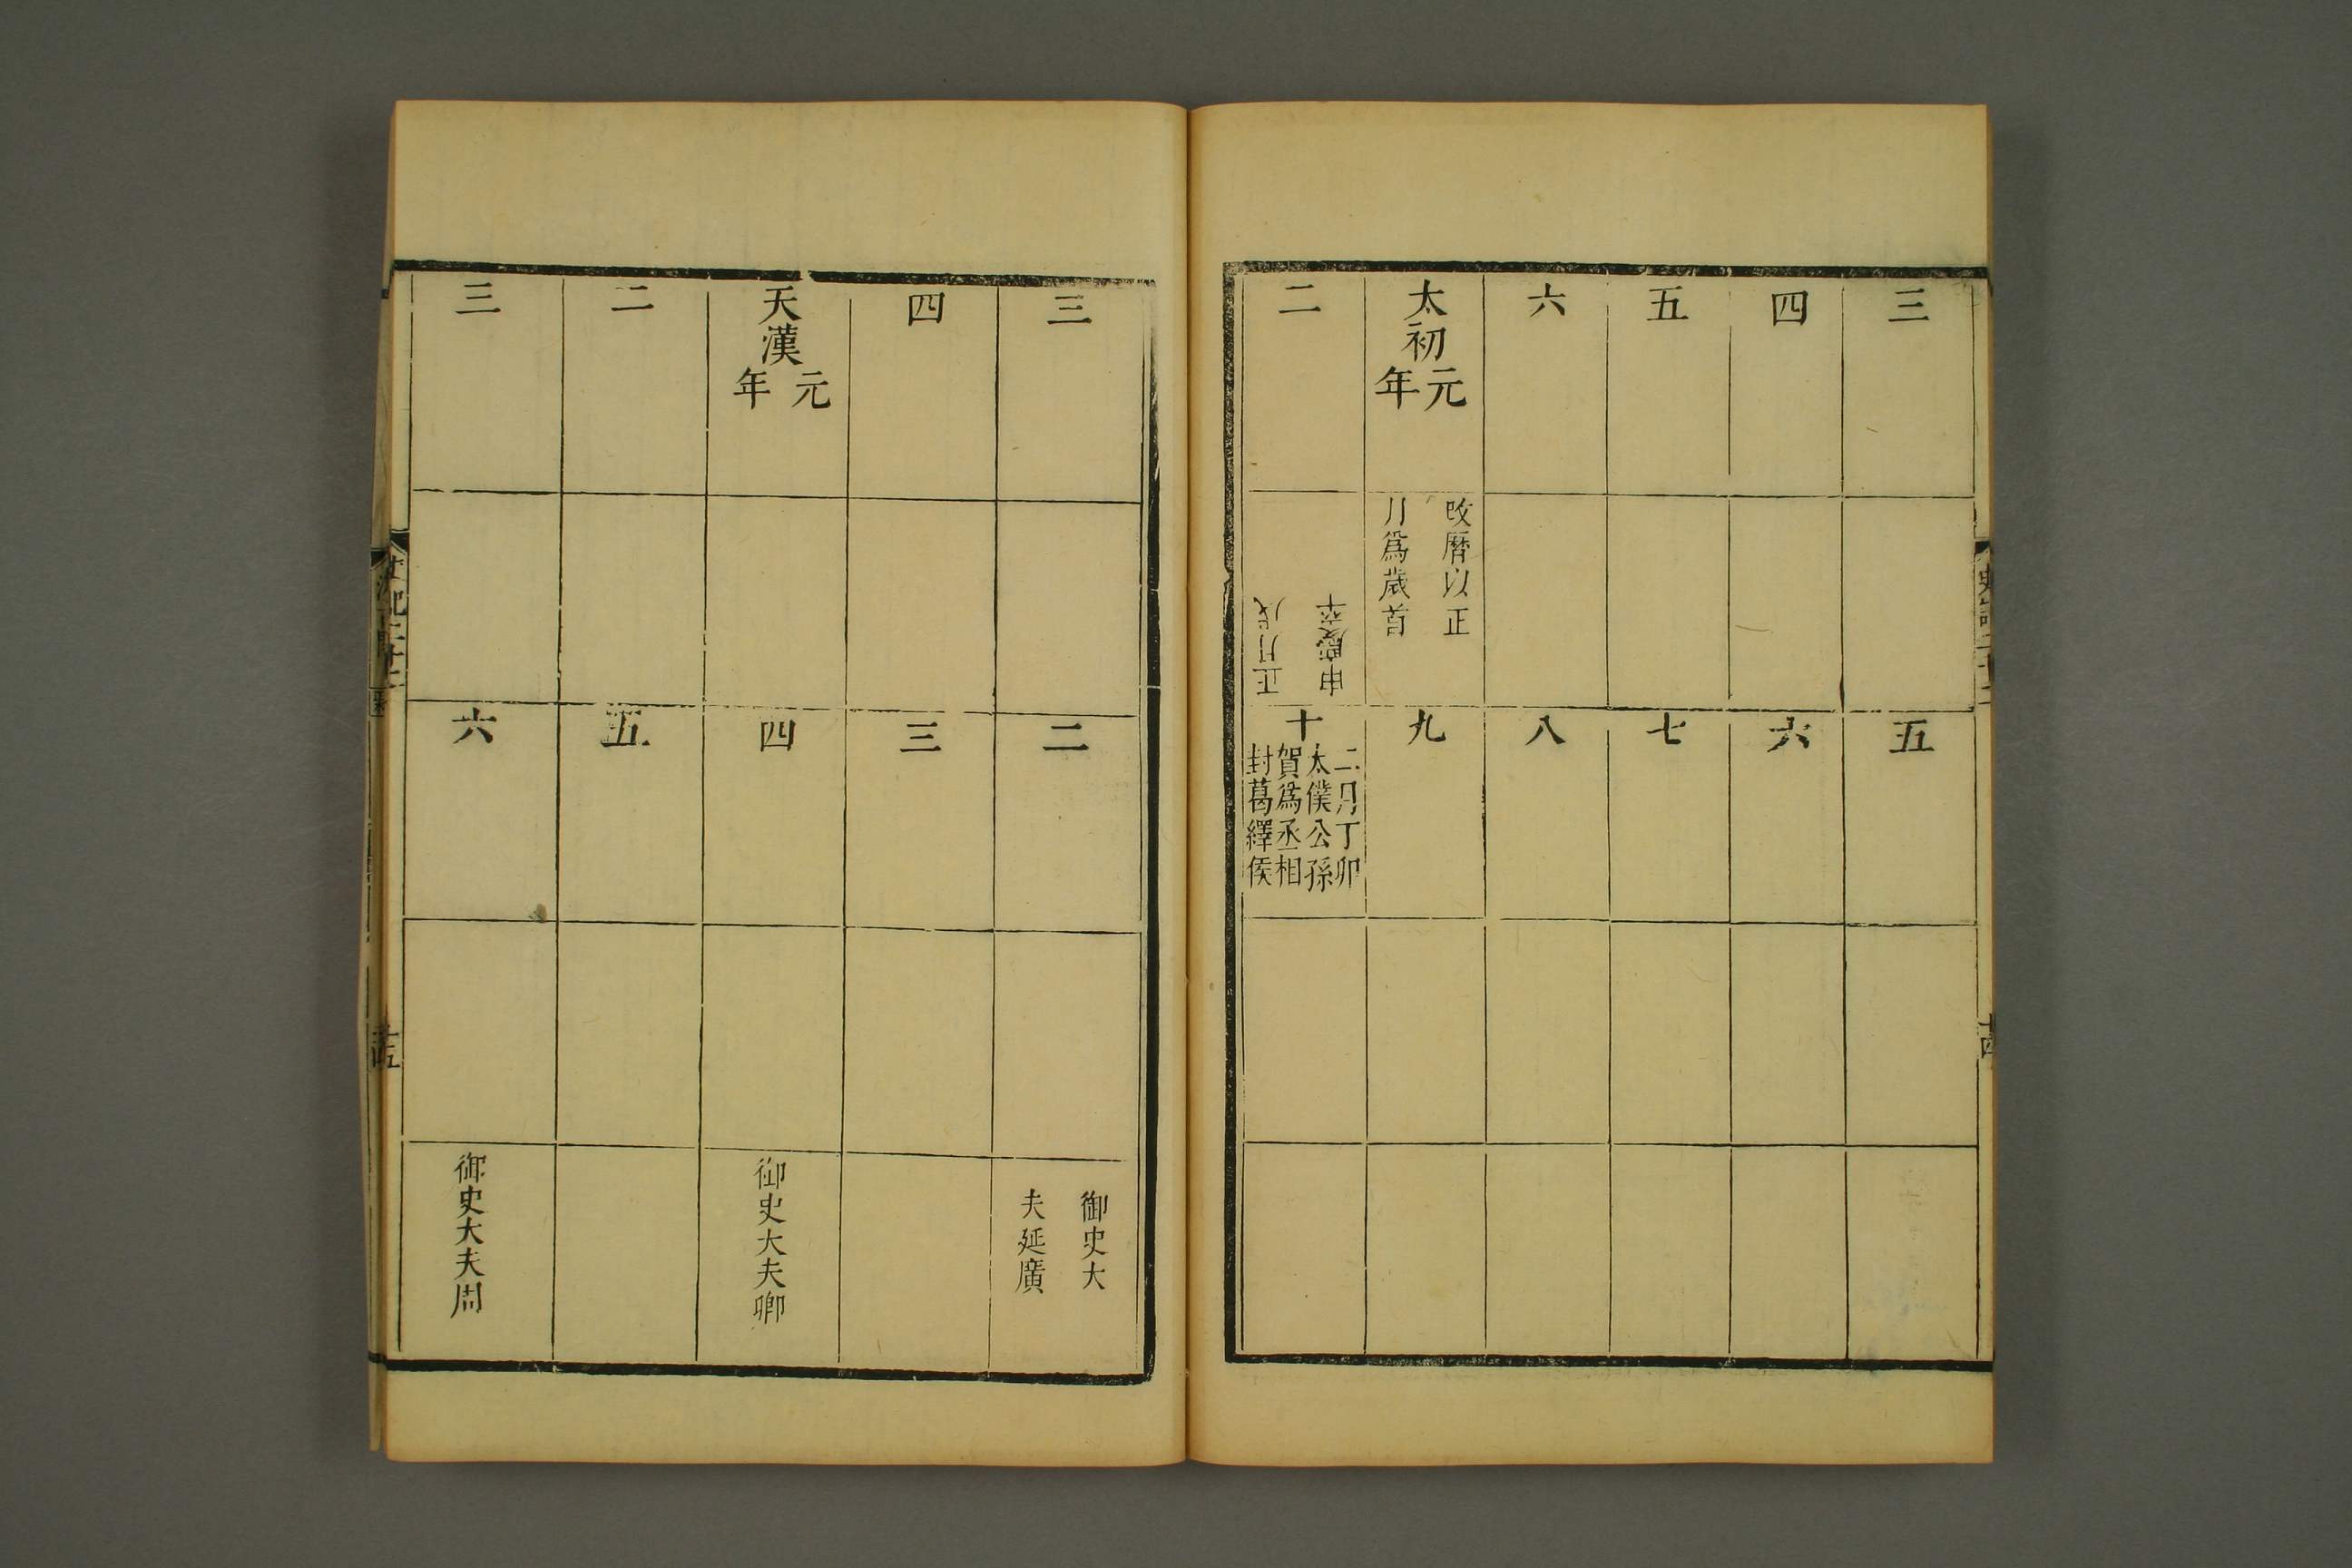 三
五
四
六
五
七
六
八
太初
元
年
改曆以正
月爲歲首
九
二
正月戊
申慶卒
十
二月丁卯
太僕公孫
賀爲丞相
封葛繹侯
三
二
御史大
夫延廣
四
三
天漢
元
年
四
御史大夫卿
二
五
三
六
御史大夫周